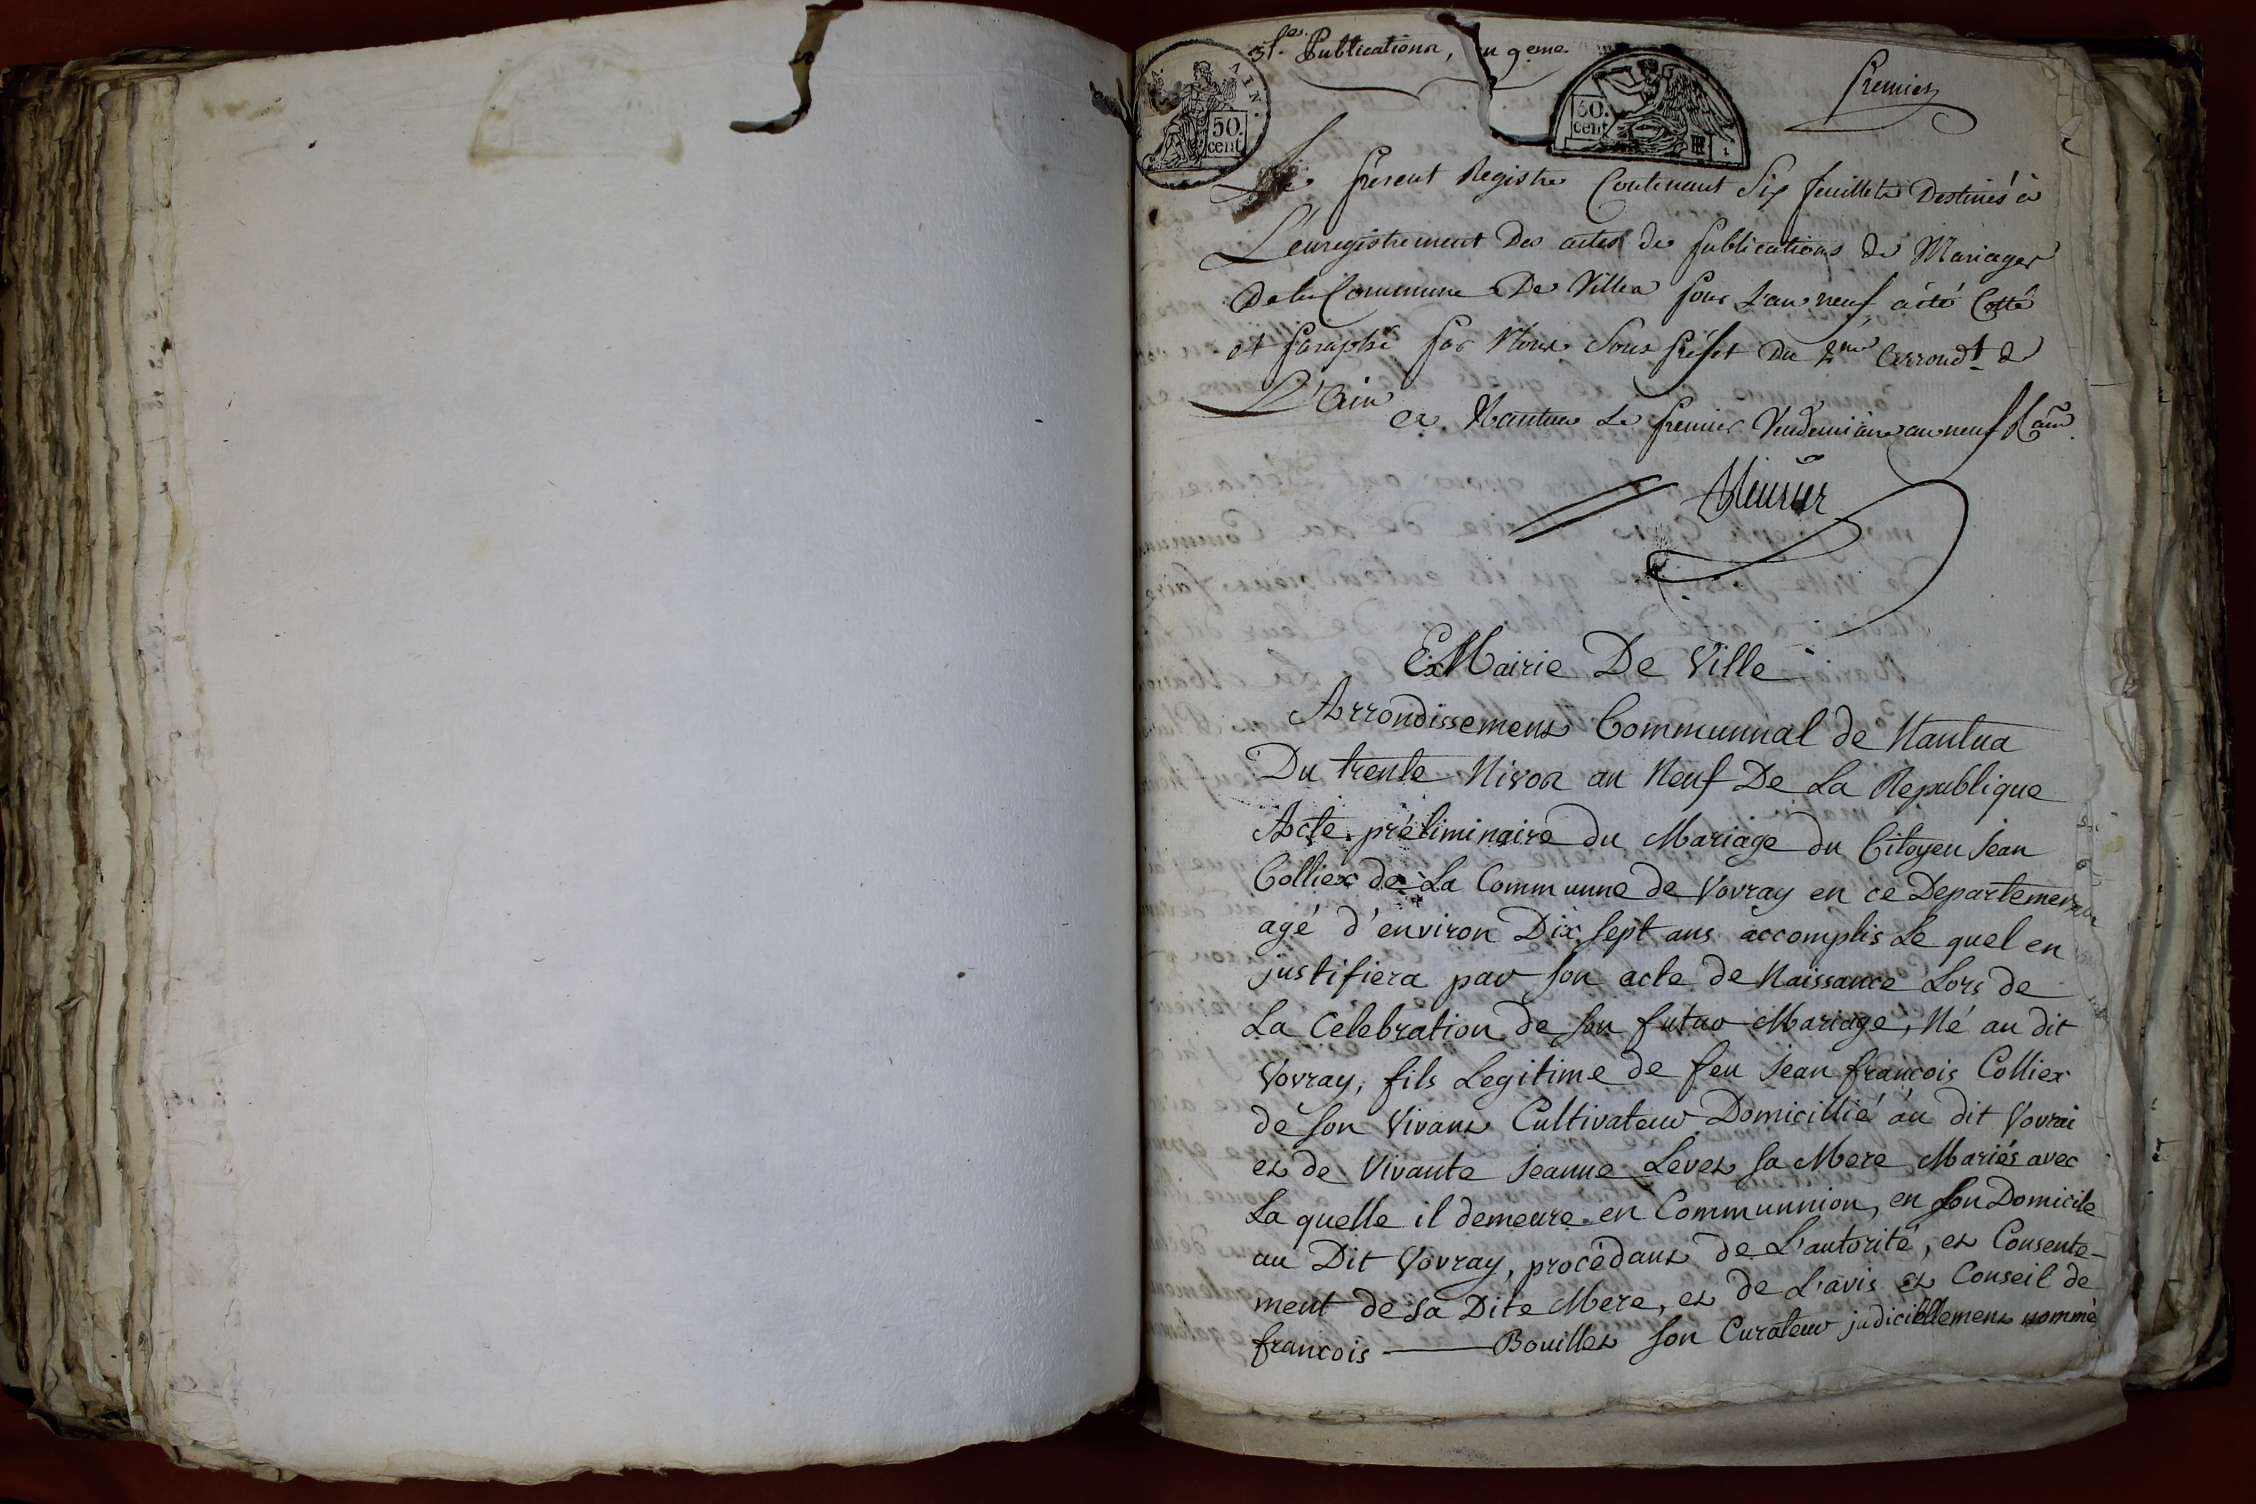 5f.es Publications, an 9.eme
Premier
AIN.
50. cent
50. cent
Le present Registre Contenant Six feuillets Destinés à
L'enregistrement Des actes de publications de Mariages
De la Commune De Villes pour L'an neuf, a été Cotté
et paraphé par Nous Sous préfet Du 2.me Arrondt. de
L'Ain
à Nantua Le premier Vendemiaire an neuf
Meurier
Mairie De Ville
Arrondissement Communnal de Nantua
Du trente Nivos an Neuf De La Republique
Acte préliminaire du Mariage du Citoyen Jean
Colliex de La Communne de Vovray en ce Departement
agé d'environ Dix sept ans accomplis Le quel en
justifiera par son acte de Naissance Lors de
La Célebration de son futur Mariage, Né au dit
Vovray, fils Legitime de feu Jean françois Colliex
de son Vivant Cultivateur Domicillié au dit Vovrai
et de Vivante Jeanne Levet sa Mere Mariés avec
La quelle il demeure en Communnion, en son Domicile
au Dit Vovray, procédant de L'autorité, et Consente-
ment de sa Dite Mere, et de L'avis et Conseil de
françois ——— Bouillet son Curateur judiciellement nommé